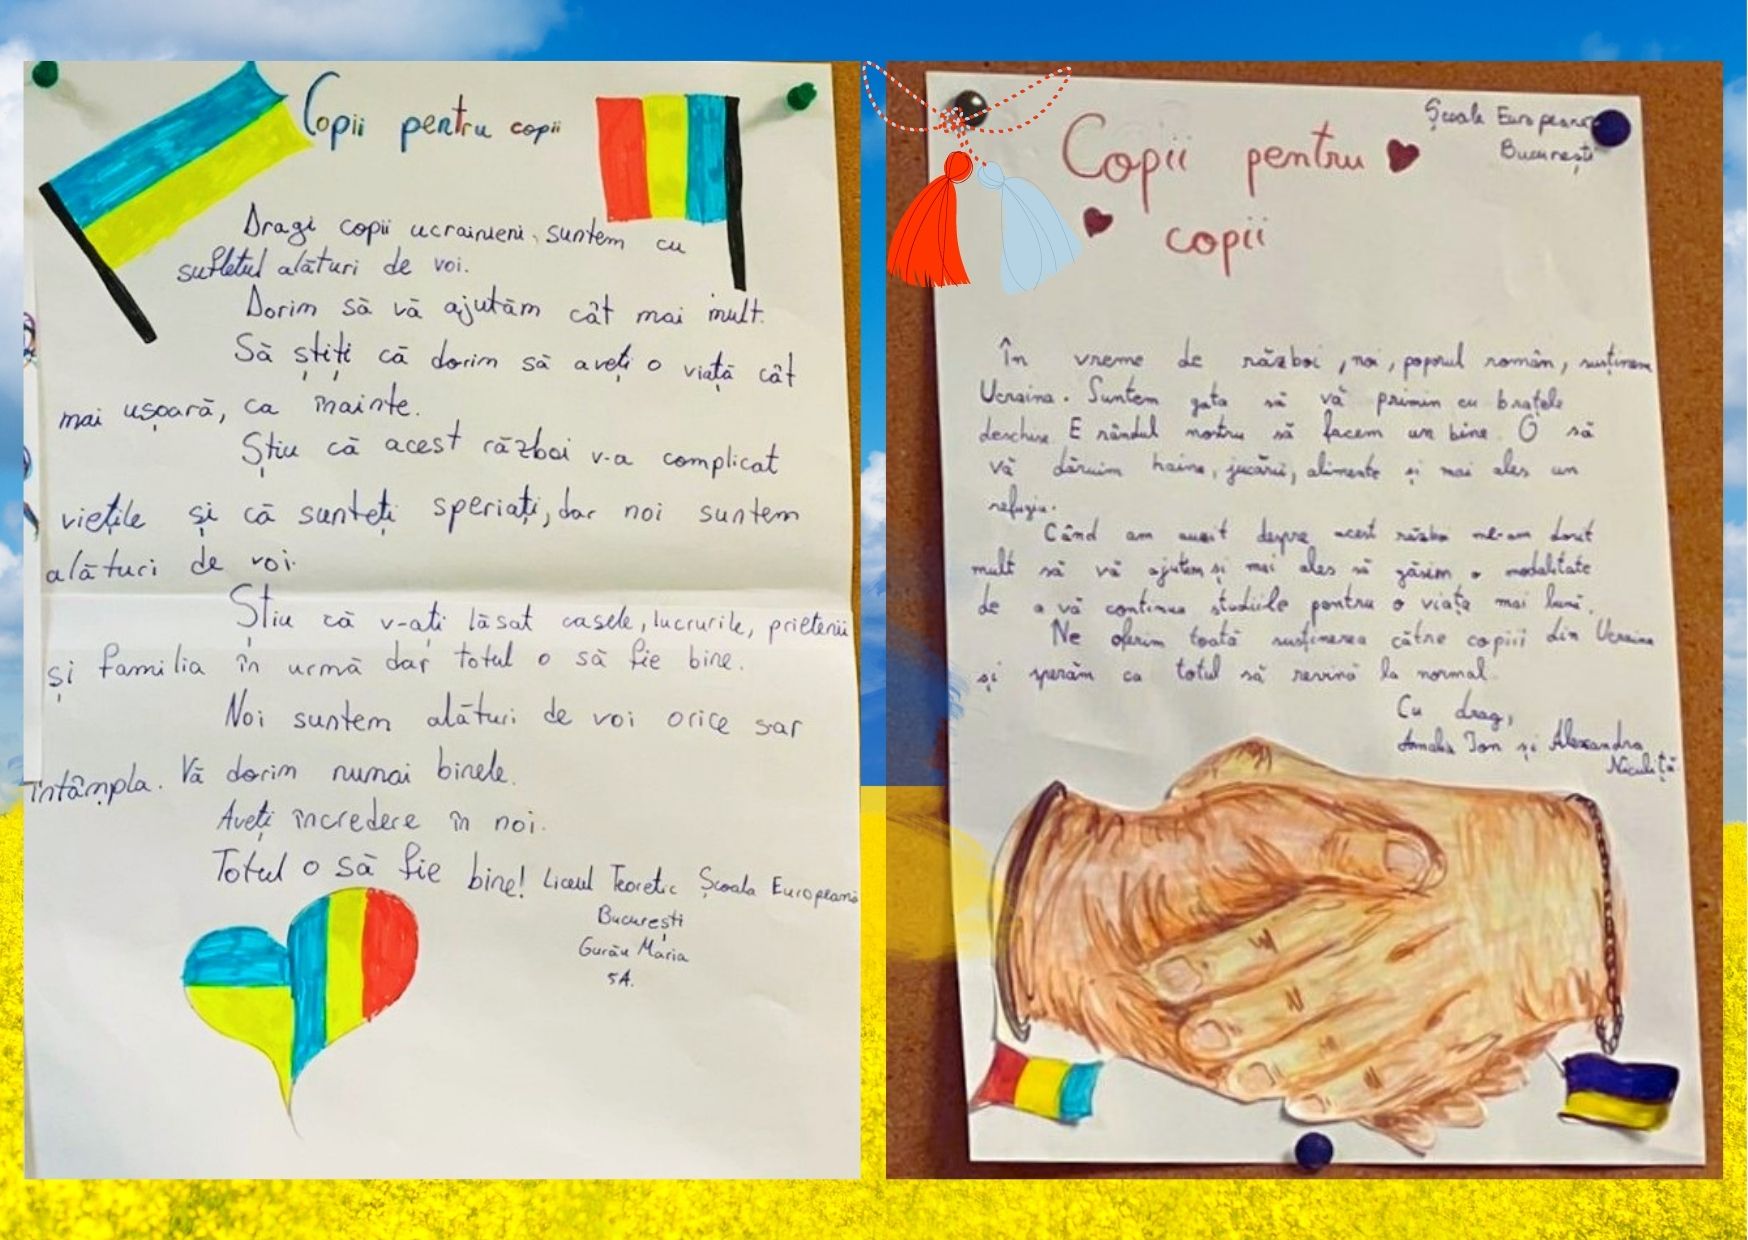 Copii pentru copii
Dragi copii ucrainieni, suntem cu
sufletul alături de voi.
Dorim să vă ajutăm cât mai mult.
Să știți că dorim să aveți o viață cât
mai ușoară, ca înainte.
Știu că acest război v-a complicat
viețile și că sunteți speriați, dar noi suntem
alături de voi.
Știu că v-ați lăsat casele, lucrurile, prietenii
și familia în urmă dar totul o să fie bine.
Noi suntem alături de voi orice s-ar
întâmpla. Vă dorim numai binele.
Aveți încredere în noi.
Totul o să fie bine! Liceul Teoretic Școala Europeană
București
Gurău Maria
5A.
Școala Europeană
București
Copii pentru
copii
În vreme de război, noi, poporul român, susținem
Ucraina. Suntem gata să vă primim cu brațele
deschise. E rândul nostru să facem un bine. O să
vă dăruim haine, jucării, alimente și mai ales un
refugiu.
Când am auzit despre acest război ne-am dorit
mult să vă ajutăm și mai ales să găsim o modalitate
de a vă continua studiile pentru o viață mai bună.
Ne oferim toată susținerea către copiii din Ucraina
și sperăm ca totul să revină la normal.
Cu drag,
Amalia Ion și Alexandra
Niculiță